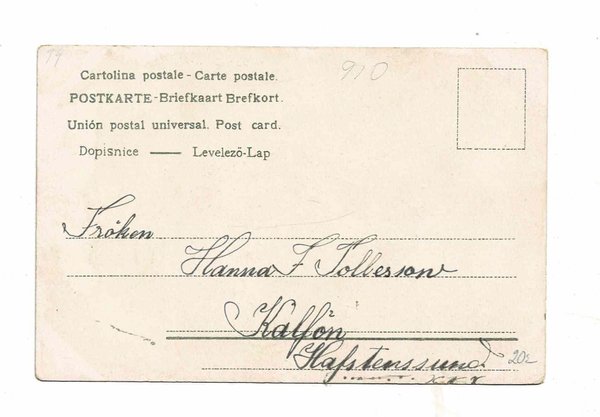 Cartolina postale - Carte postale.
POSTKARTE - Briefkaart Brefkort.
Unión postal universal. Post card.
Dopisnice — Levelező-Lap
Fröken
Hanna F Tolberson
Kalfön
Hafstenssund
20:-